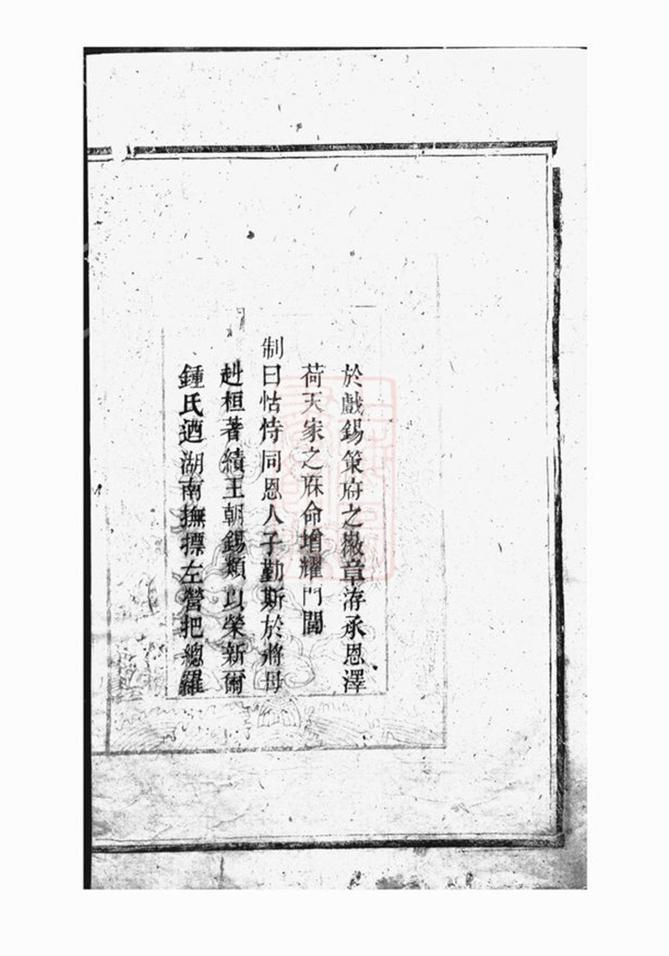 於戲錫策府之徽章洊承恩澤
荷天家之庥命增耀門閭
制曰怙恃同恩人子勤斯於將母
赳桓著績王朝錫類以榮親爾
鍾氏迺湖南撫標左營把總羅